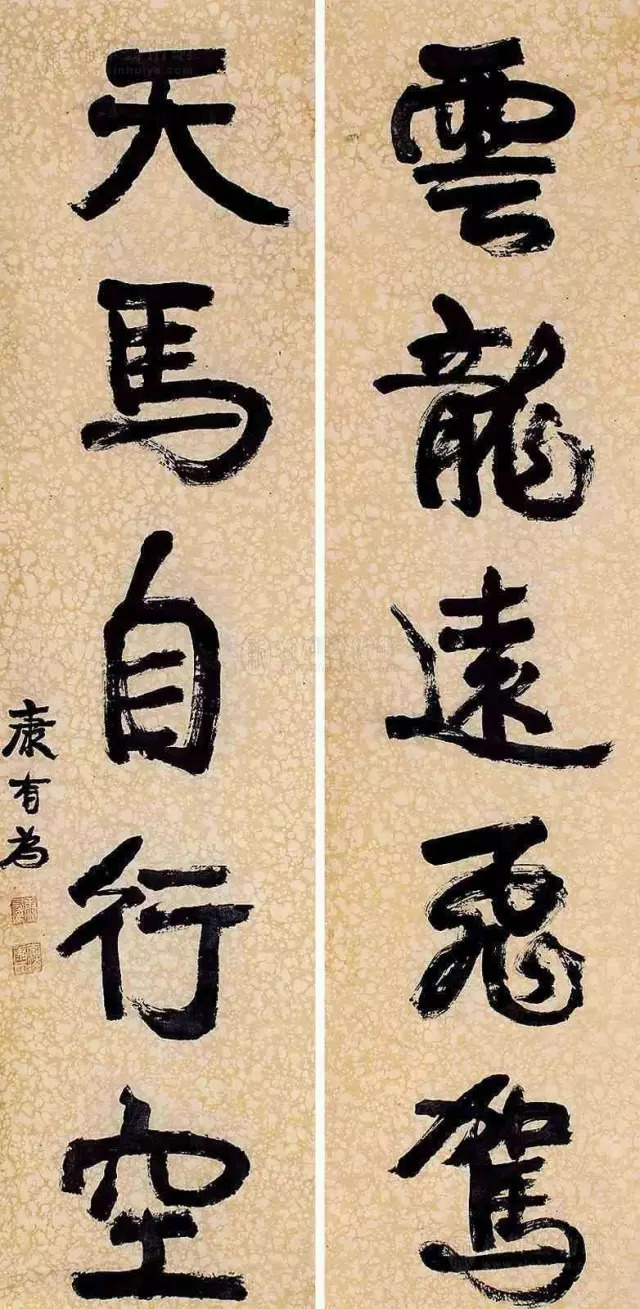 雲龍遠飛駕
天馬自行空
康有為